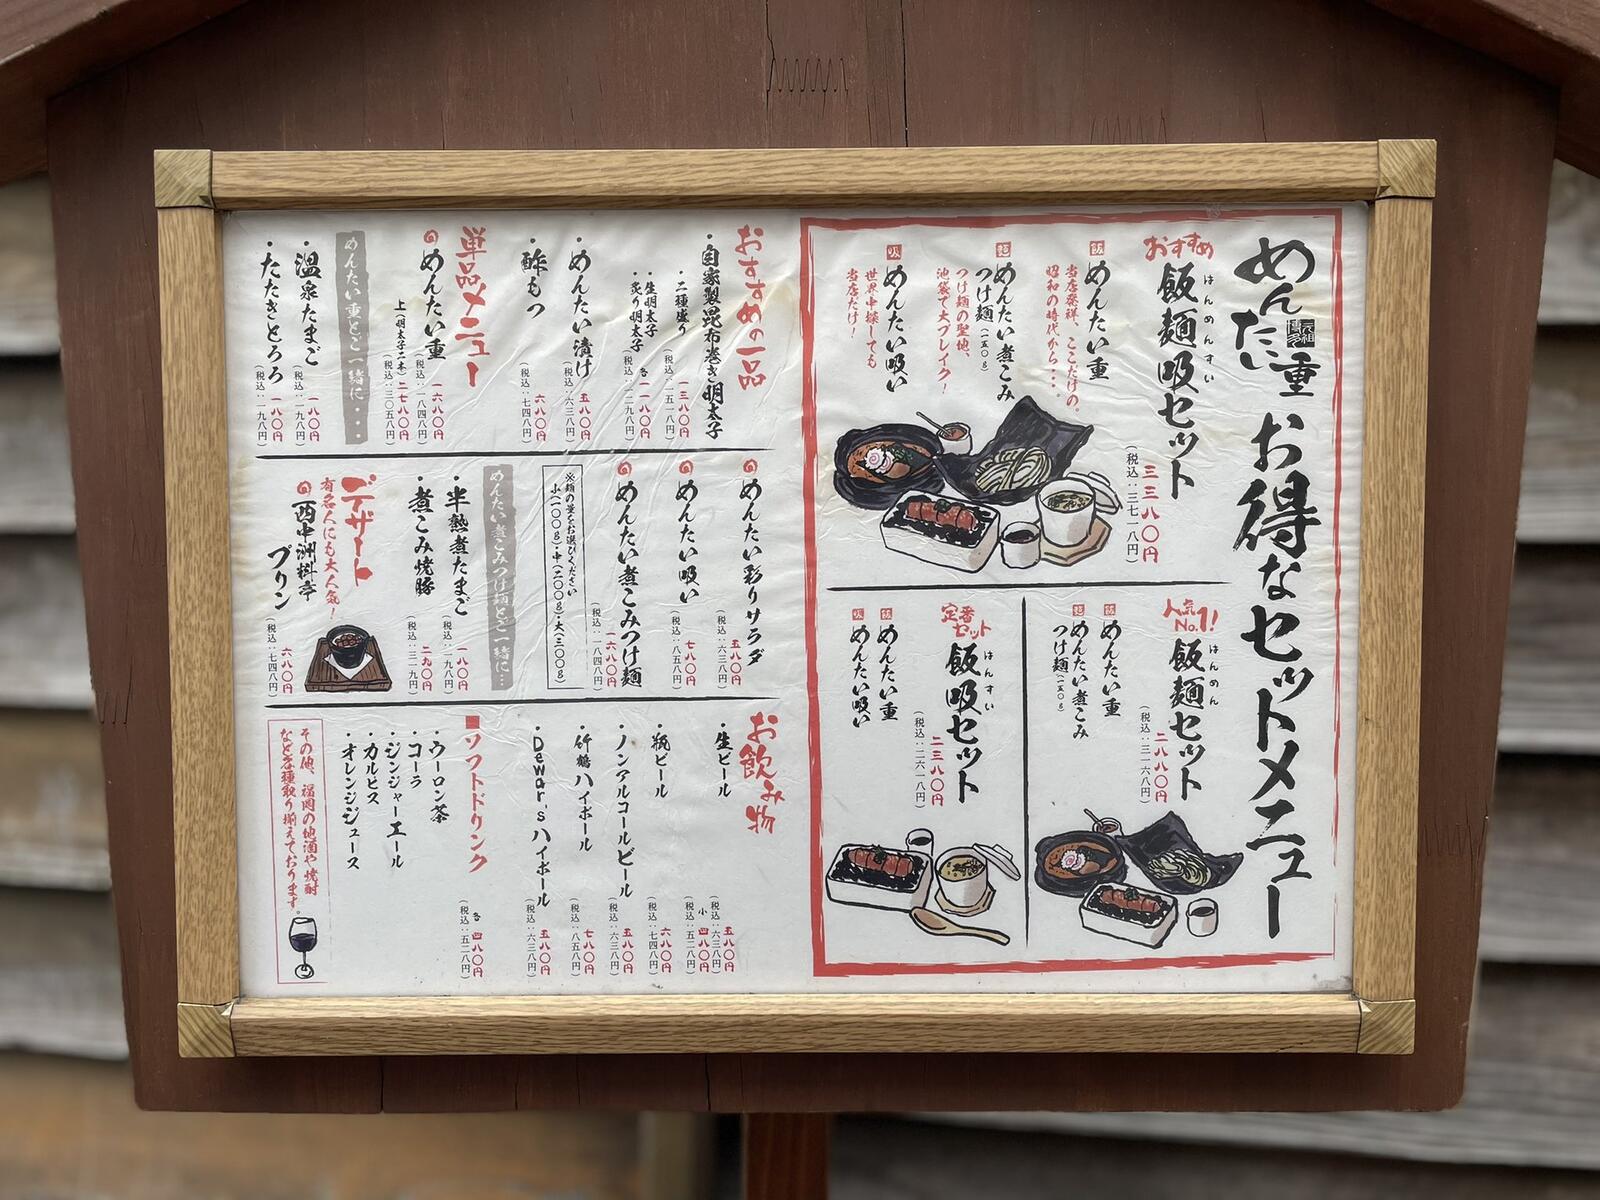 めんたい重
元祖博多
お得なセットメニュー
おすすめ
はんめんすい
飯麺吸セット
三三八〇円
(税込:三七一八円)
飯
めんたい重
当店発祥、ここだけの。
昭和の時代から・・・
麺
めんたい煮こみ
つけ麺(一五〇g)
つけ麺の聖地、
池袋で大ブレイク!
吸
めんたい吸い
世界中探しても
当店だけ!
人気No.1!
はんめん
飯麺セット
二八八〇円
(税込:三一六八円)
飯
めんたい重
麺
めんたい煮こみ
つけ麺(一五〇g)
定番セット
はんすい
飯吸セット
二三八〇円
(税込:二六一八円)
飯
めんたい重
吸
めんたい吸い
おすすめの一品
・自家製昆布巻き明太子
・二種盛り
一三八〇円
(税込:一五一八円)
・生明太子
・炙り明太子
各一一八〇円
(税込:一二九八円)
・めんたい漬け
五八〇円
(税込:六三八円)
・酢もつ
六八〇円
(税込:七四八円)
単品メニュー
めんたい重
一六八〇円
(税込:一八四八円)
上(明太子二本)二七八〇円
(税込:三〇五八円)
めんたい重とご一緒に・・・
・温泉たまご
一八〇円
(税込:一九八円)
・たたきとろろ
一八〇円
(税込:一九八円)
めんたい彩りサラダ
五八〇円
(税込:六三八円)
めんたい吸い
七八〇円
(税込:八五八円)
めんたい煮こみつけ麺
一六八〇円
(税込:一八四八円)
※麺の量をお選びください
小(一〇〇g)・中(二〇〇g)・大(三〇〇g)
めんたい煮こみつけ麺とご一緒に・・・
・半熟煮たまご
一八〇円
(税込:一九八円)
・煮こみ焼豚
二九〇円
(税込:三一九円)
デザート
有名人にも大人気!
西中洲料亭
プリン
六八〇円
(税込:七四八円)
お飲み物
・生ビール
五八〇円
(税込:六三八円)
小 四八〇円
(税込:五二八円)
・瓶ビール
六八〇円
(税込:七四八円)
・ノンアルコールビール
五八〇円
(税込:六三八円)
・竹鶴ハイボール
七八〇円
(税込:八五八円)
・Dewar'sハイボール
五八〇円
(税込:六三八円)
■ソフトドリンク
各 四八〇円
(税込:五二八円)
・ウーロン茶
・コーラ
・ジンジャーエール
・カルピス
・オレンジジュース
その他、福岡の地酒や焼酎
など各種取り揃えております。